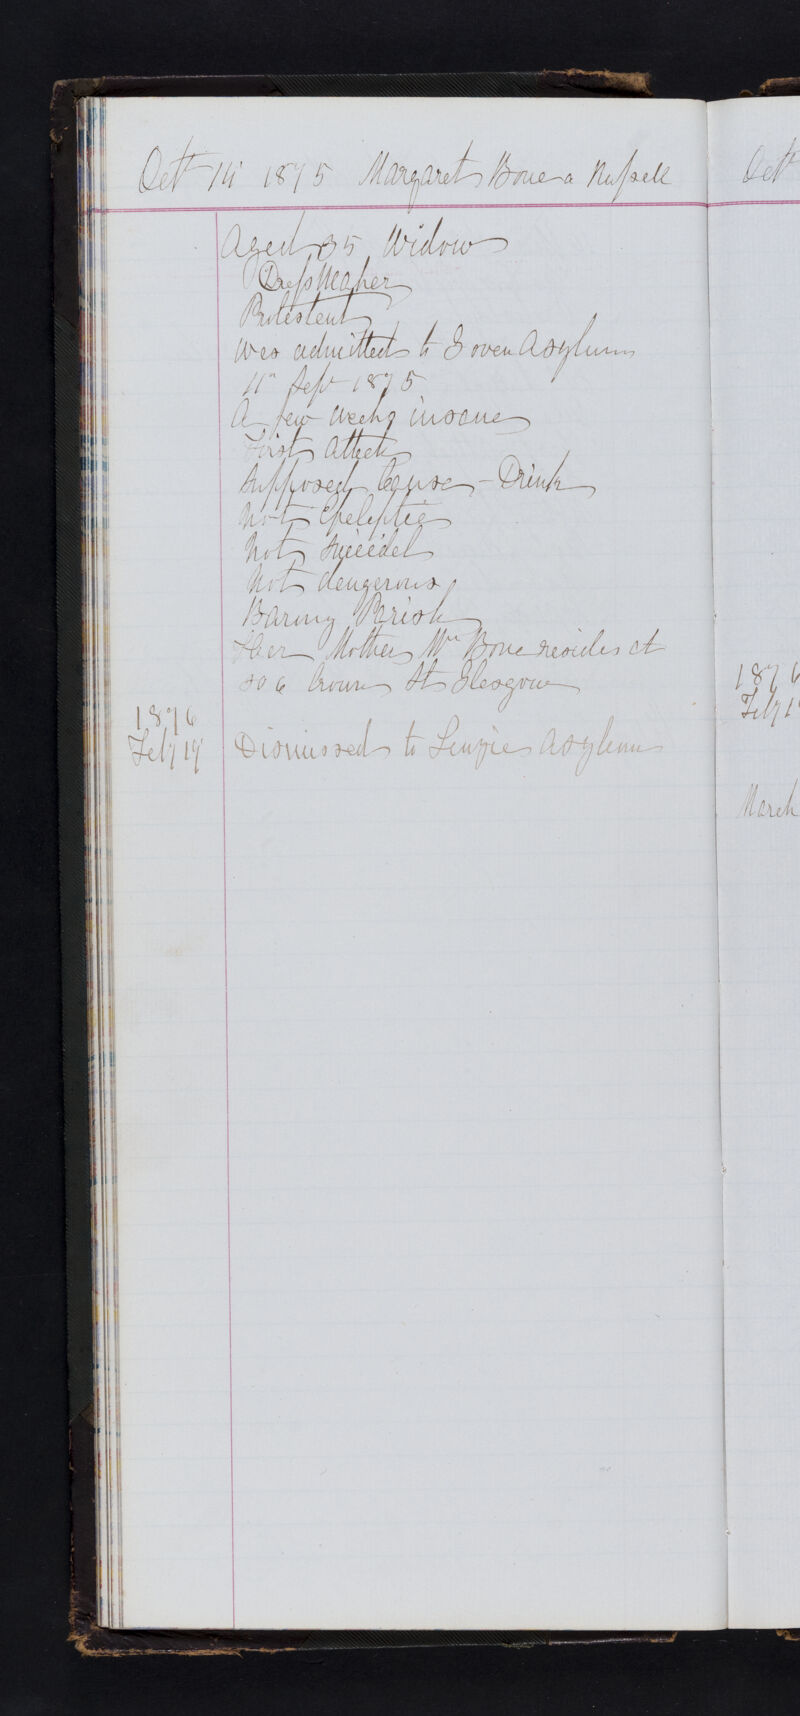 Octr 14 1875 Margaret Bone or Russell
Aged 35 Widow
DressMaker
Protestant
Was admitted to Govan Asylum
11th Sept 1875
A few weeks insane
First Attack
Supposed Cause - Drink
Not Epeleptic
Not Suicidal
Not dangerous
Barony Parish
Her Mother Mrs Bone resides at
306 Crown St Glasgow
1876
Feby 17 Dismissed to Lenzie Asylum
Octr
1876
Feby 1
March